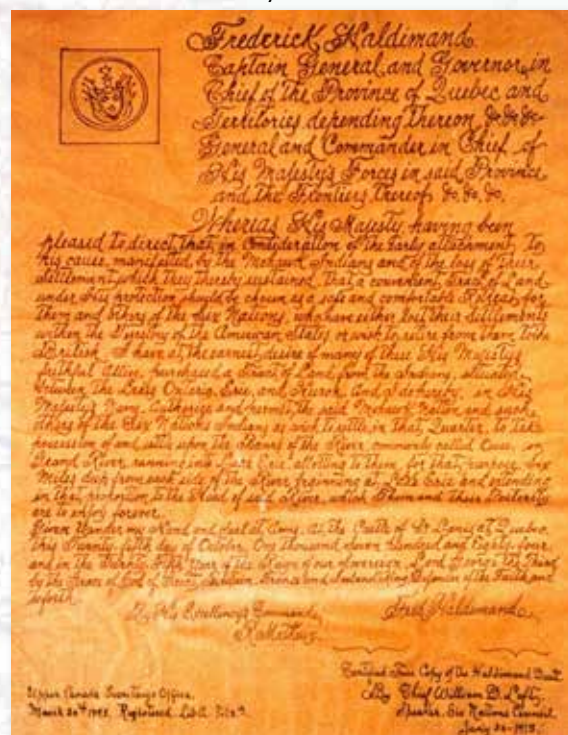 Frederick Haldimand
Captain General and Governor in
Chief of the Province of Quebec and
Territories depending thereon &c &c &c
General and Commander in Chief of
His Majesty's Forces in said Province
and the Frontiers thereof &c. &c. &c.
Whereas His Majesty having been
pleased to direct that in Consideration of the early attachment to
his cause manifested by the Mohawk Indians and of the loss of their
settlement which they thereby sustained that a convenient Tract of Land
under His protection should be chosen as a safe and comfortable Retreat for
them and others of the Six Nations who have either lost their settlements
within the Territory of the American States or wish to retire from them to the
British I have at the earnest desire of many of these His Majesty's
faithful Allies purchased a Tract of Land from the Indians situated
between the Lakes Ontario, Erie, and Huron and in His
Majesty's Name authorize and permit the said Mohawk Nation and such
others of the Six Nations Indians as wish to settle in that Quarter to take
possession of and settle upon the Banks of the River commonly called Ouse or
Grand River running into Lake Erie allotting to them for that purpose Six
Miles deep from each side of the River beginning at Lake Erie and extending
in that proportion to the Head of said River, which Them and Their Posterity
are to enjoy forever.
Given Under my Hand and Seal at Arms at the Castle of St Louis at Quebec
this Twenty fifth day of October One thousand seven hundred and Eighty four
and in the Twenty Fifth Year of the Reign of our Sovereign Lord George The Third
by the Grace of God of Great Britain France and Ireland King Defender of the Faith and
soforth.
By His Excellency's Command
Fred Haldimand
Certified True Copy of the Haldimand
By Chief William D. Lofty
Speaker, Six Nations Council
Upper Canada Secretary's Office.
March 20th Registered